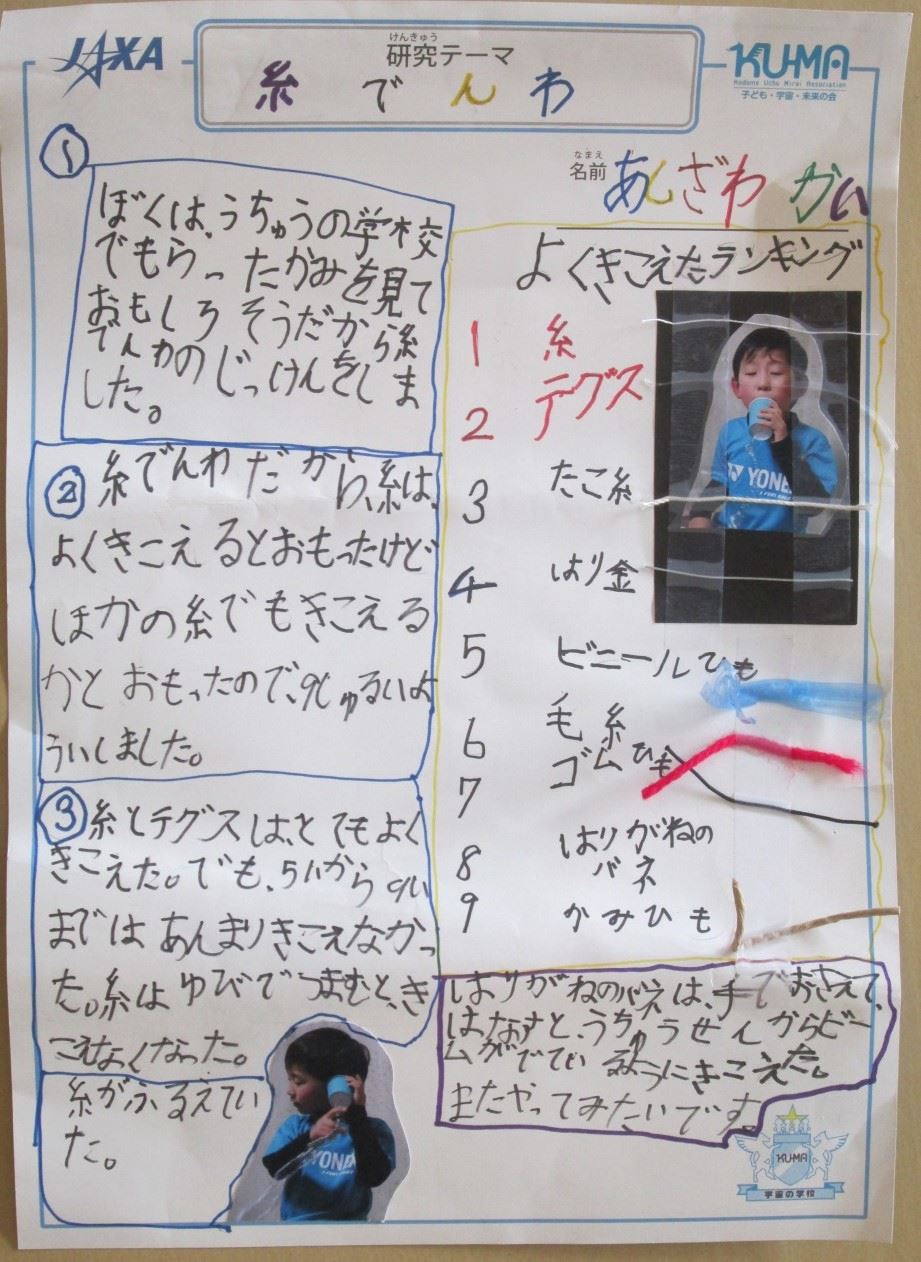 JAXA
けんきゅう
研究テーマ
糸でんわ
KU-MA
Kodomo Uchu Mirai Association
子ども・宇宙・未来の会
なまえ
名前
あんざわ かい
1
ぼくは、うちゅうの学校
でもらったかみを見て
おもしろそうだから糸
でんわのじっけんをしま
した。
2
糸でんわだから、糸は、
よくきこえるとおもったけど
ほかの糸でもきこえる
かとおもったので、9しゅるいよ
ういしました。
3
糸とテグスは、とてもよく
きこえた。でも、5いから9い
まではあんまりきこえなかっ
た。糸はゆびでつまむと、き
こえなくなった。
糸がふるえてい
た。
よくきこえたランキング
1 糸
2 テグス
3 たこ糸
4 はり金
5 ビニールひも
6 毛糸
7 ゴムひも
8 はりがねの
バネ
9 かみひも
YONEX
はりがねのバネは、手でおさえて、
はなすと、うちゅうせんからビー
ムがでているようにきこえた。
またやってみたいです。
YONEX
KU-MA
宇宙の学校